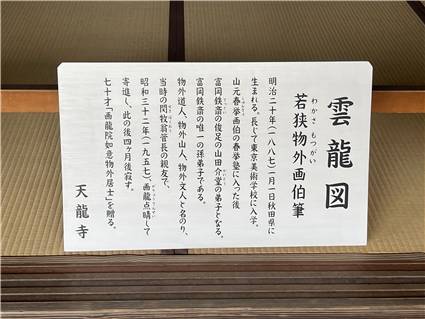 雲龍図
わかさ もつがい
若狭物外画伯筆
明治二十年(一八八七)一月一日秋田県に
生まれる。長じて東京美術学校に入学、
山元春挙画伯の春挙塾に入った後
富岡鉄斎の俊足の山田介堂の弟子となる。
富岡鉄斎の唯一の孫弟子である。
物外道人、物外山人、物外文人と名のり、
当時の関牧翁管長の親友で、
昭和三十二年(一九五七)、画龍点睛して
寄進し、此の後四ヶ月後寂す。
七十才「画龍院如意物外居士」を贈る。
天龍寺